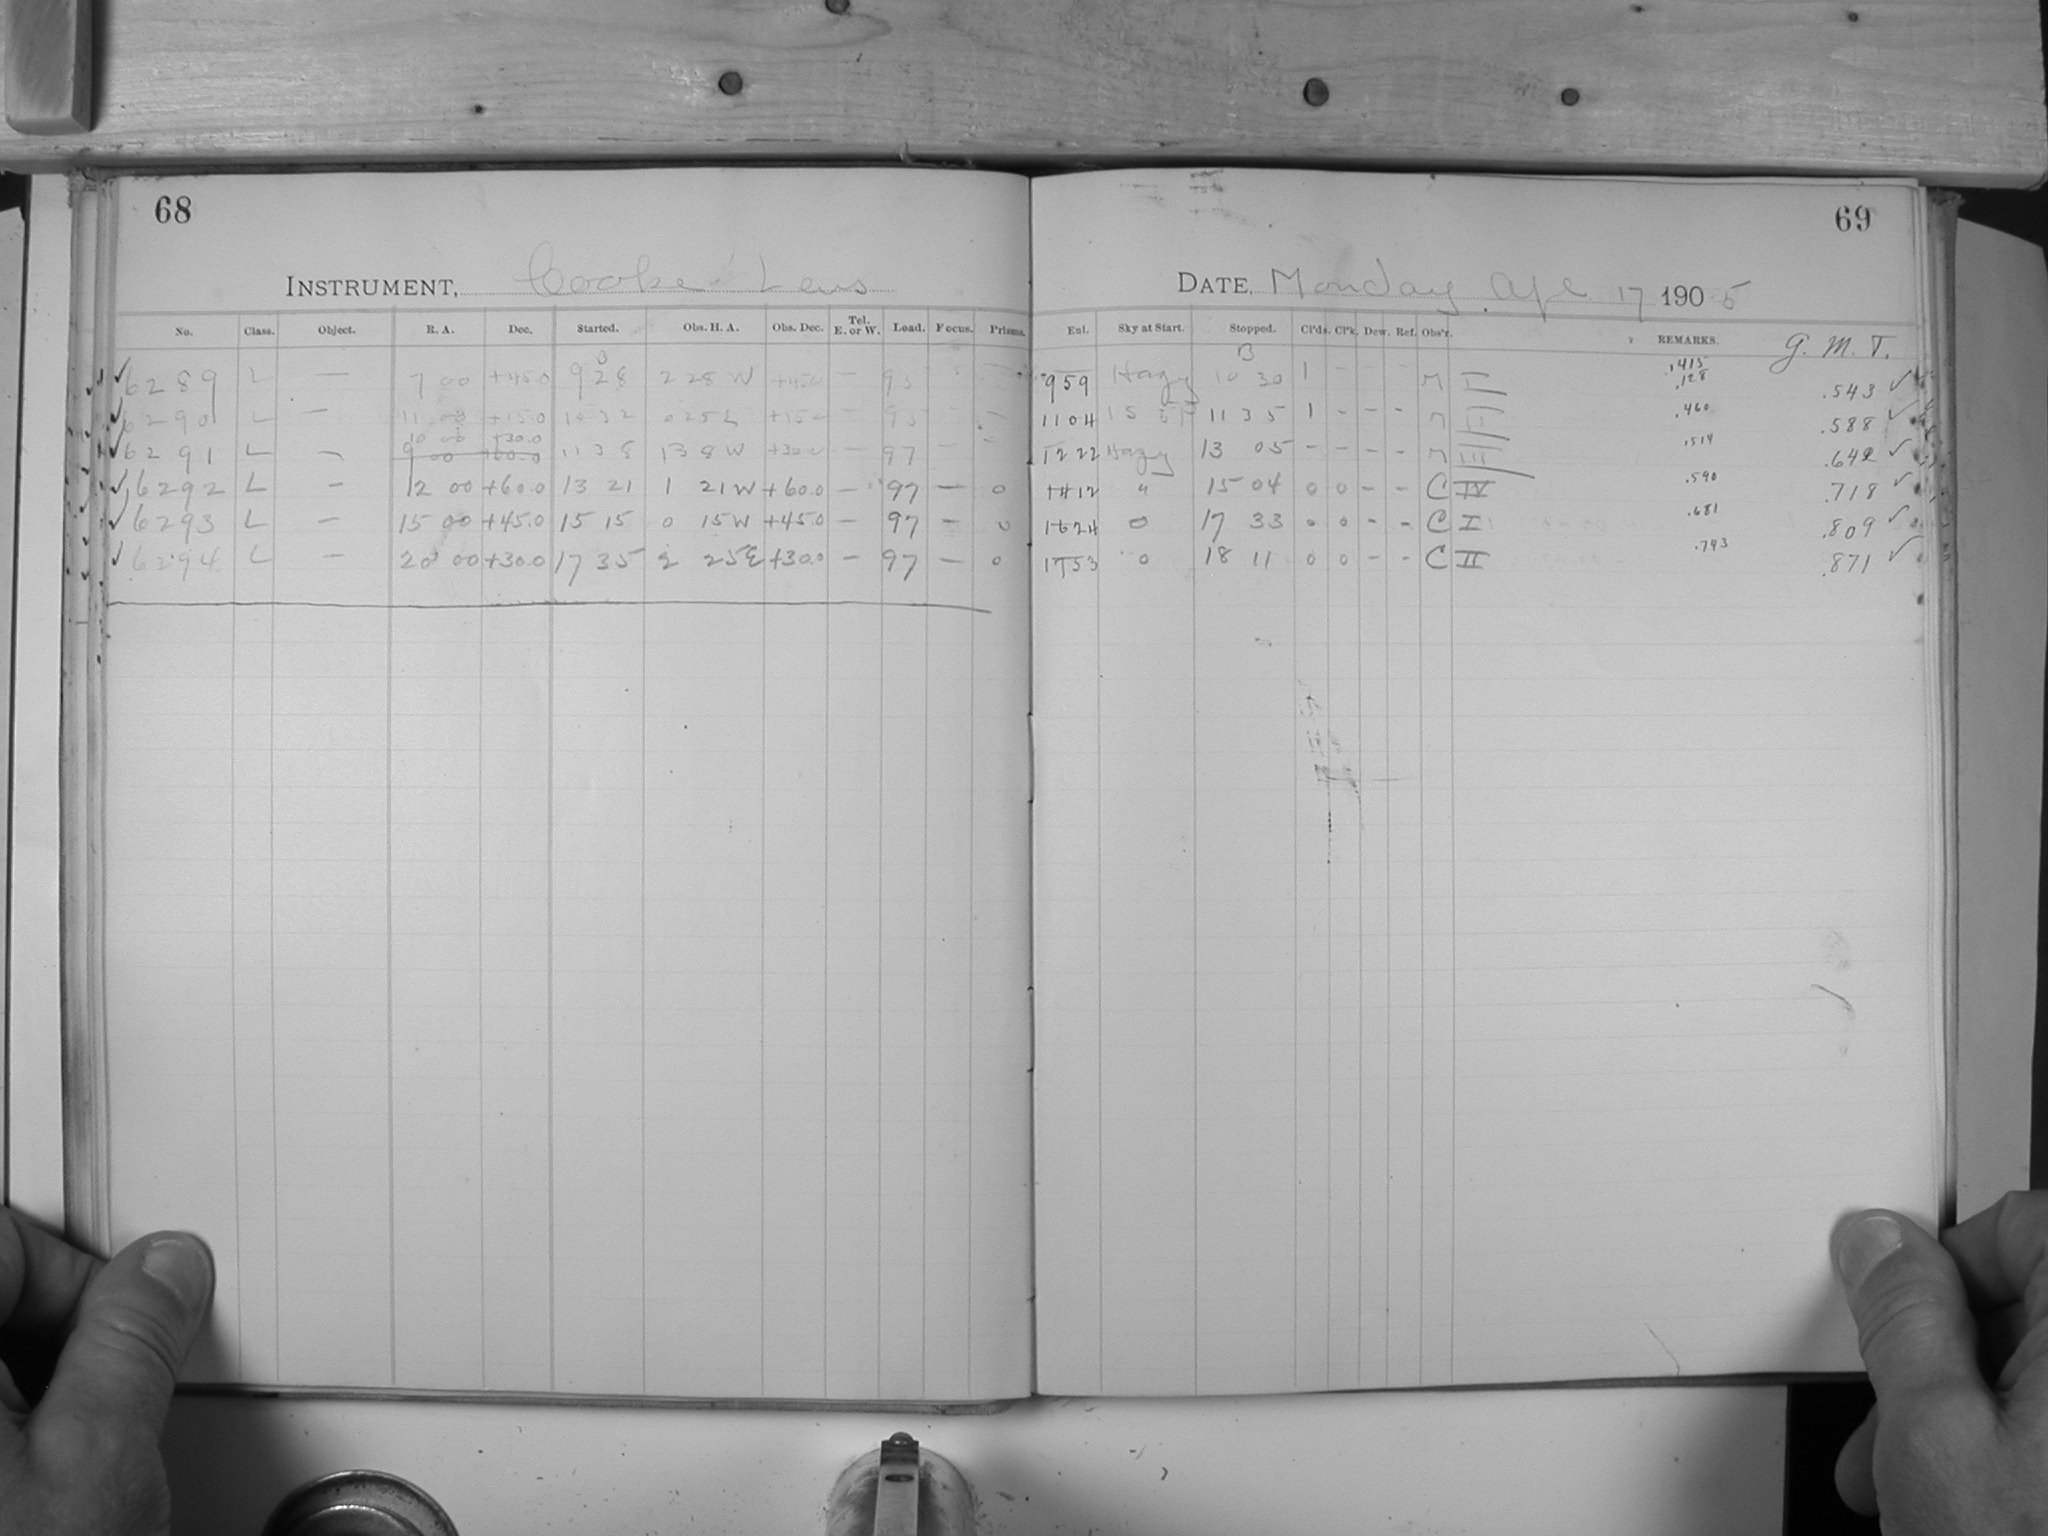 68
INSTRUMENT, Cooke Lens
No. Class. Object. R. A. Dec. Started. Obs. H. A. Obs. Dec. Tel. E. or W. Load. Focus. Prisms.
B
6289 L — 7 00 +45.0 9 28 2 28 W +45.0 — 93
6290 L — 11 00 +15.0 10 32 0 25 E +15.0 — 93 —
10 00 +30.0
6291 L — 9 00 +60.0 11 38 1 38 W +30.0 — 97 — —
6292 L — 12 00 +60.0 13 21 1 21 W +60.0 — 97 — 0
6293 L — 15 00 +45.0 15 15 0 15 W +45.0 — 97 — 0
6294 L — 20 00 +30.0 17 35 2 25 E +30.0 — 97 — 0
69
DATE, Monday Apl 17 1905
Exl. Sky at Start. Stopped. Cl'ds. Cl'k. Dew. Ref. Obs'r. REMARKS. G. M. T.
B .415
959 Hazy 10 30 1 - - - M I .128 .543 ✓
1104 11 35 1 - - - M II .460 .588 ✓
1222 Hazy 13 05 - - - - M III .514 .642 ✓
1412 " 15 04 0 0 - - C IV .590 .718 ✓
1624 0 17 33 0 0 - - C I .681 .809 ✓
1753 0 18 11 0 0 - - C II .743 .871 ✓